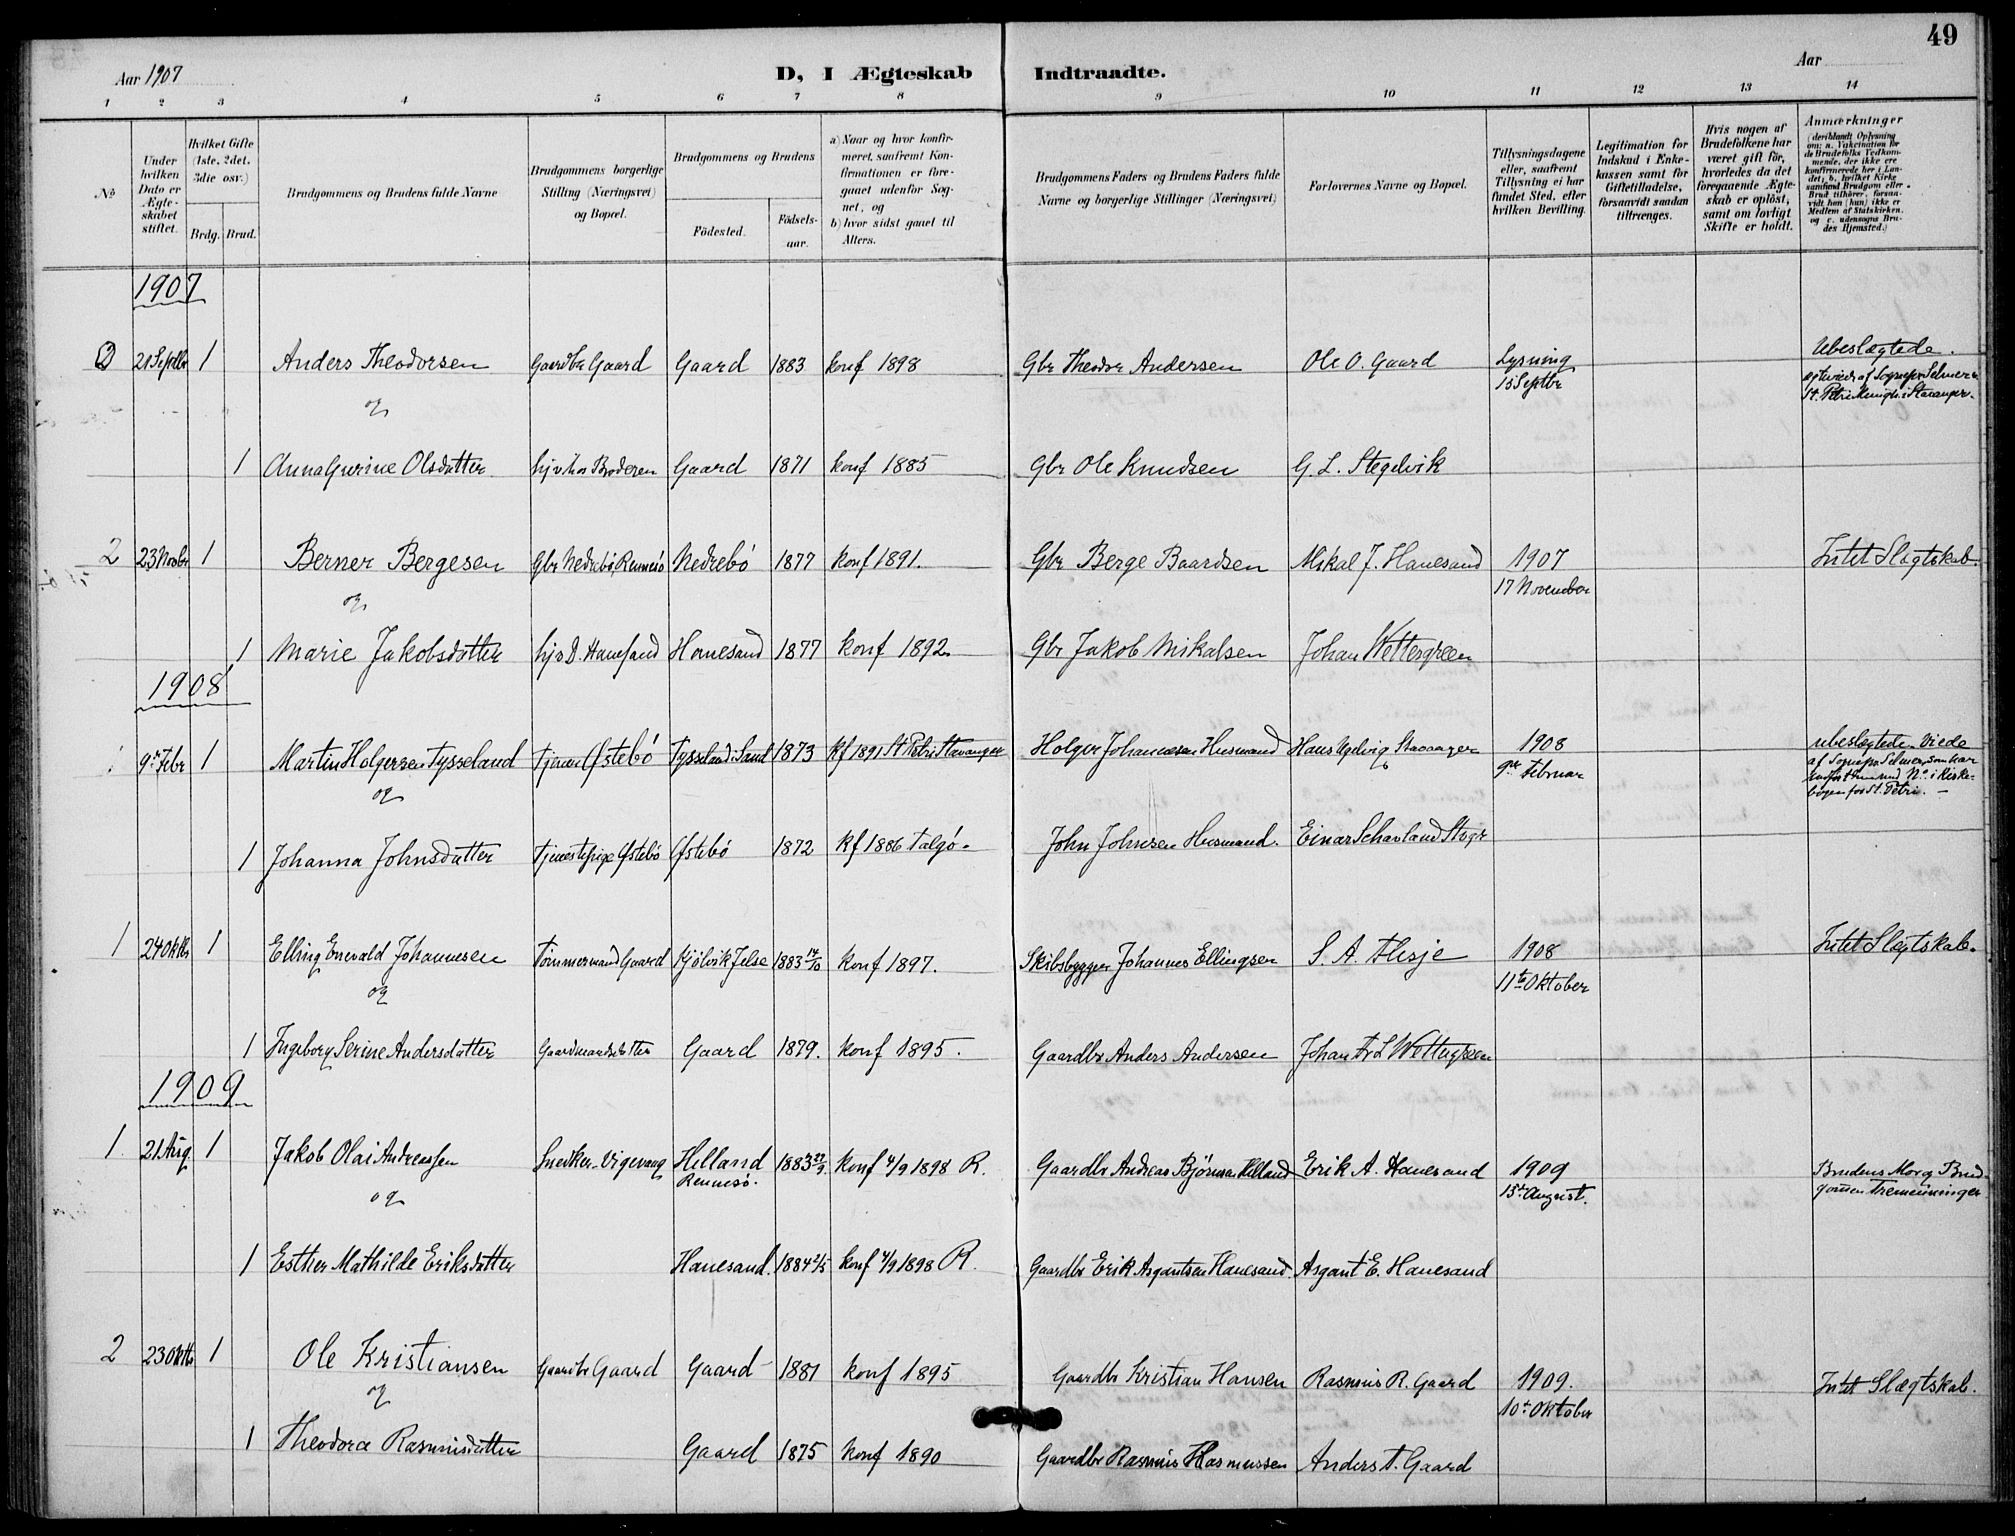 49
Aar 1907
D, I Ægteskab Indtraadte.
Aar
1 2 3 4 5 6 7 8 9 10 11 12 13 14
№
Under hvilken Dato er Ægteskabet stiftet.
Hvilket Gifte (1ste, 2det, 3die osv.)
Brdg. Brud.
Brudgommens og Brudens fulde Navne
Brudgommens borgerlige Stilling (Næringsvei) og Bopæl.
Brudgommens og Brudens
Födested. Födsels-aar.
a) Naar og hvor konfirmeret, saafremt Konfirmationen er foregaaet udenfor Sognet, og
b) hvor sidst gaaet til Alters.
Brudgommens Faders og Brudens Faders fulde Navne og borgerlige Stillinger (Næringsvei)
Forlovernes Navne og Bopæl.
Tillysningsdagene eller, saafremt Tillysning ei har fundet Sted, efter hvilken Bevilling.
Legitimation for Indskud i Enkekassen samt for Giftetilladelse, forsaavidt saadan tiltrænges.
Hvis nogen af Brudefolkene har været gift för, hvorledes da det foregaaende Ægteskab er oplöst, samt om lovligt Skifte er holdt.
Anmærkninger
(deriblandt Oplysning om: a. Vakcination for de Brudefolks Vedkommende, der ikke ere konfirmerede her i Landet; b. hvilket Kirkesamfund Brudgom eller Brud tilhörer, forsaavidt han (hun) ikke er Medlem af Statskirken, og c. udensogns Brudes Hjemsted.)
1907
21 Septbr 1 Anders Theodorsen Gaardbr Gaard Gaard 1883 konf 1898 Gbr Theodor Andersen Ole O. Gaard Lysning Ubeslægtede.
15 Septbr
og
St. Petri Menigh. i Stavanger.
1 Anna Gurine Olsdatter hjv hos Broderen Gaard 1871 konf 1885 Gbr Ole Knudsen G. L. Stegelvik
2 23 Novbr 1 Berner Bergesen Gbr Nedrebö, Rennesö Nedrebö 1877 konf 1891. Gbr Berge Baardsen Mikal J. Hanesand 1907 Intet Slægtskab.
17 November
og
1 Marie Jakobsdatter Hanesand Hanesand 1877 konf 1892 Gbr Jakob Mikalsen Johan Wettergreen
1908
9de Febr 1 Martin Holgersen Tysseland Tjener Østebö Tysseland i Sand 1873 kf 1891 St Petri Stavanger Holger Johannesen Husmand Hans Ugelvig Stavanger 1908 ubeslægtede. Viede
9de Februar af Sognepr Selmer, som har
og
bogen for St. Petri. —
1 Johanna Johnsdatter Tjenestepige Østebö Østebö 1872 kf 1886 Talgø. John Johnsen Husmand. Einar Schavland Stvgr
1 24 Oktbr 1 Elling Enevald Johannesen Tömmermand Gaard Kjölvik Jelse 1883 14/10 konf 1897. Skibsbygger Johannes Ellingsen S. A. Flesje 1908 Intet Slægtskab.
11te Oktober
og
1 Ingeborg Serine Andersdatter Gaardmandsdatter Gaard 1879. konf 1895. Gaardbr Anders Andersen Johan Fr L Wettergreen
1909
1. 21 Aug. 1 Jakob Olai Andreassen Snedker Vigevaag Helland 1883 konf 4/9 1898 R. Gaardbr Andreas Björnsen Helland Erik A. Hanesand 1909 Brudens Mor og Brud-
Rennesö. 15de August. gommen Tremenninger
og
1 Esther Mathilde Eriksdatter Hanesand. 1884 2/5 konf 4/9 1898 R. Gaardbr Erik Asgautsen Hanesand. Asgaut E. Hanesand
2 23 Oktbr 1 Ole Kristiansen Gaardbr Gaard Gaard 1881 konf 1895 Gaardbr Kristian Hansen Rasmus R. Gaard 1909. Intet Slægtskab.
10de Oktober
og
1 Theodora Rasmusdatter Gaard 1875 konf 1890 Gaardbr Rasmus Rasmussen Anders T. Gaard